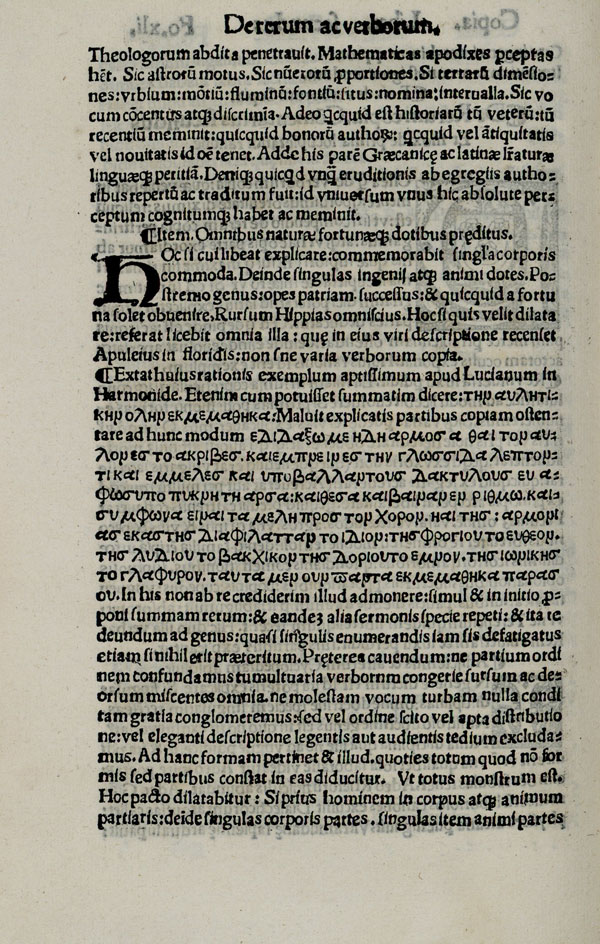 De rerum ac verborum.
Theologorum abdita penetrauit. Mathematicas apodixes ꝑceptas
hēt. Sic astrorū motus. Sic nūerorū ꝓportiones. Si terrarū dimēsio-
nes: vrbium: mōtiū: fluminū: fontiū: situs: nomina: interualla. Sic vo
cum cōcentus atqꝫ discrimīa. Adeo qcquid est historiarū tū veterū: tū
recentiū meminit: quicquid bonorū authoꝝ: qcquid vel ātiquitatis
vel nouitatis id oē tenet. Adde his parē Græcanicę ac latinæ lr̄aturæ
linguæqꝫ peritiā. Deniqꝫ quicqd vnqꝫ eruditionis ab egregiis autho-
ribus repertū ac traditum fuit: id vniuersum vnus hic absolute per-
ceptum cognitumqꝫ habet ac meminit.
¶Item. Omnibus naturæ fortunæqꝫ dotibus pręditus.
HOc si cui libeat explicare: commemorabit singl'a corporis
commoda. Deinde singulas ingenii atqꝫ animi dotes. Po-
stremo genus: opes patriam. successus: & quicquid a fortu
na solet obuenire. Rursum Hippias omniscius. Hoc si quis velit dilata
re: referat licebit omnia illa: quę in eius viri descriptione recenset
Apuleius in floridis: non sne varia verborum copia.
¶Extat huius rationis exemplum aptissimum apud Lucianum in
Harmonide. Etenim cum potuisset summatim dicere: τηρ αυλητι-
κηρ οληρ εκμεμαθηκα: Maluit explicatis partibus copiam osten-
tare ad hunc modum εδιδαξω με ηδη αρμοσα θαι τορ αυ-
λορ ες το ακριβες. και εμπρειρ ες την γλωσσιδα λεπτορ-
τι και εμμελες και υποβαλλαρ τους δακτυλους ευα-
φως υπο πυκρη τη αρσα: και θεσα και βαιραρ ερ ριθμω. και-
συμφωνα ειραι τα μελη προς τορ χορορ. και της: αρμορι
ας εκαστης διαφιλατταρ το ιδιορ: της φρογιου το ευθεορ.
της λυδιου το βακχικορ της δοριου το εμρον. της ιωρικης
το γλαφυρον. ταυτα μερ ουρ παρτα εκμεμαθηκα παρασ
ου. In his non ab re crediderim illud admonere: simul & in initio ꝓ-
poni summam rerum: & eandeꝫ alia sermonis specie repeti: & ita re
deundum ad genus: quasi singulis enumerandis iam sis defatigatus
etiam si nihil erit præteritum. Pręterea cauendum: ne partium ordi
nem confundamus tumultuaria verborum congerie sursum ac de-
orsum miscentes omnia. ne molestam vocum turbam nulla condi
tam gratia conglomeremus: sed vel ordine scito vel apta distributio
ne: vel eleganti descriptione legentis aut audientis tedium excluda-
mus. Ad hanc formam pertinet & illud. quoties totum quod nō for
mis sed partibus constat in eas diducitur. Vt totus monstrum est.
Hoc pacto dilatabitur: Si prius hominem in corpus atqꝫ animum
partiaris: deīde singulas corporis partes. singulas item animi partes